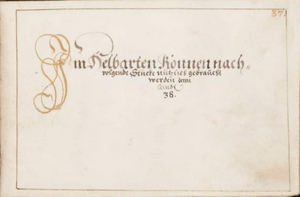 Im Helbarten Können nach
volgende Stücke nützlich gebraucht
werden
38.